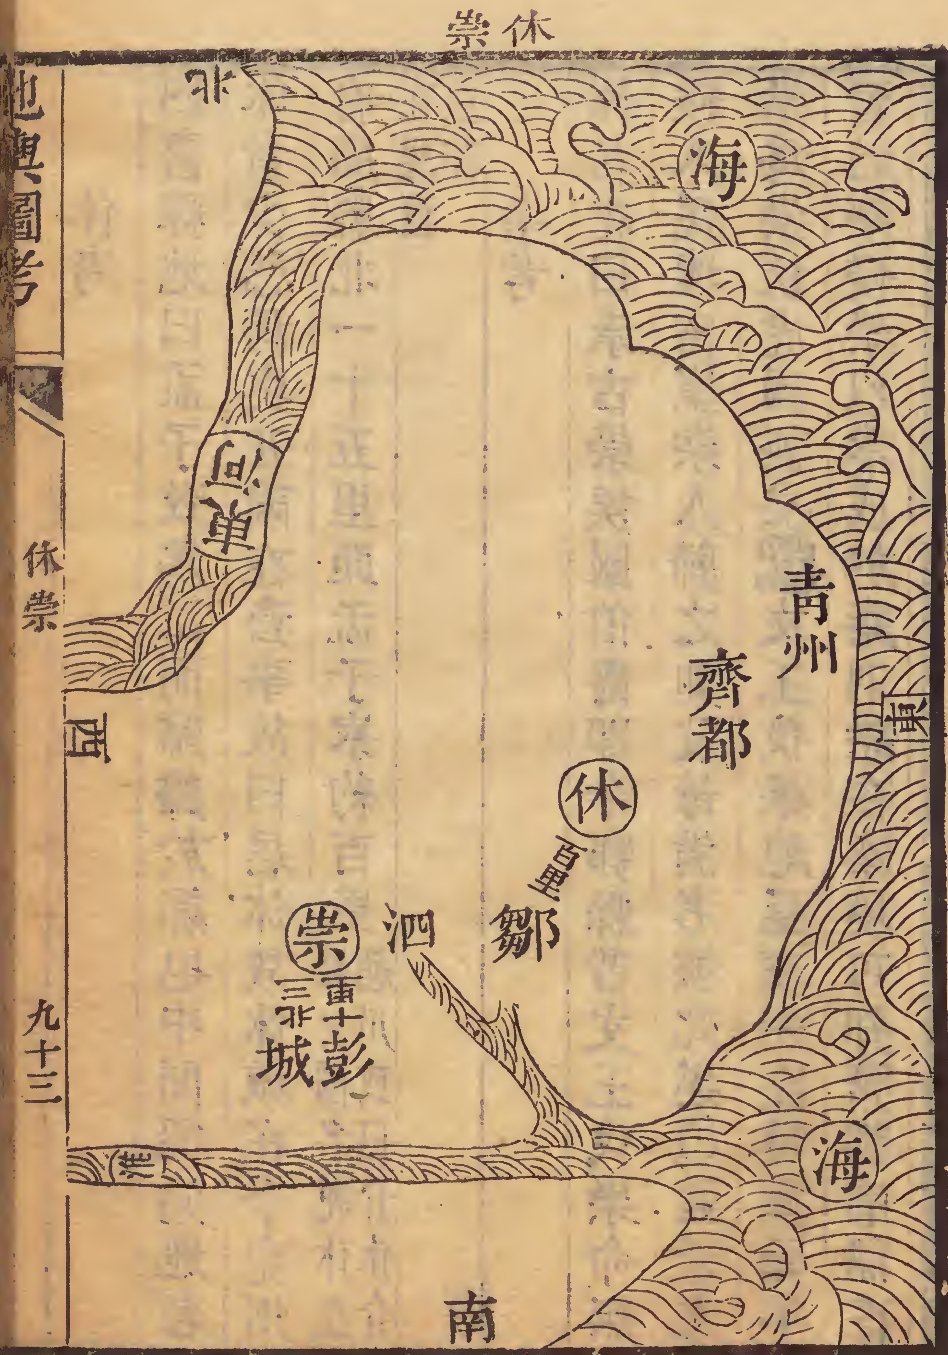 休崇
地輿圖考
休崇
九十三
北
海
東河
青州
齊都
東
西
休
百里
鄒
泗
崇
北三
十里
彭城
淮
海
南